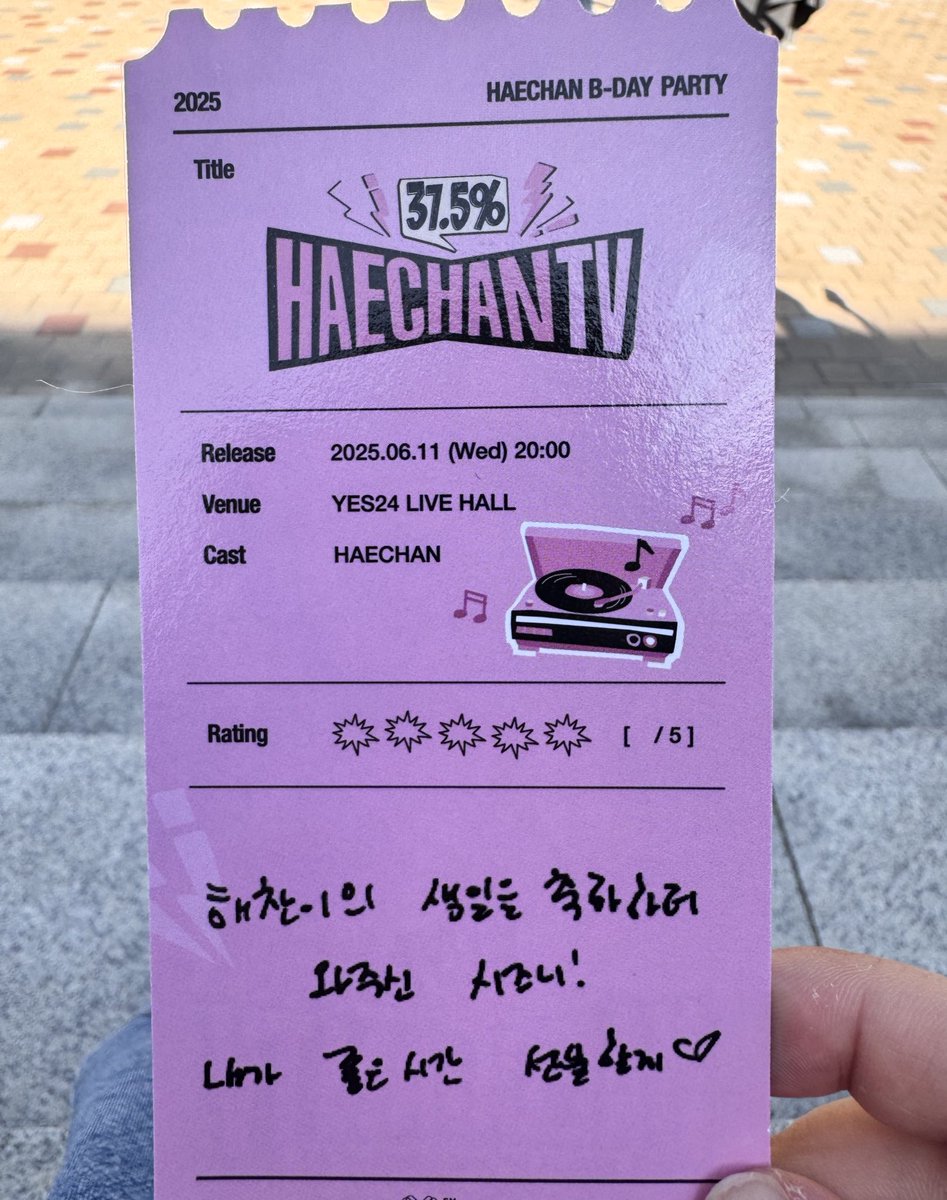 2025 HAECHAN B-DAY PARTY
Title
37.5%
HAECHANTV
Release 2025.06.11 (Wed) 20:00
Venue YES24 LIVE HALL
Cast HAECHAN
Rating [ / 5 ]
해찬이의 생일을 축하하러
와주신 시즈니!
내가 좋은 시간 선물할게♡